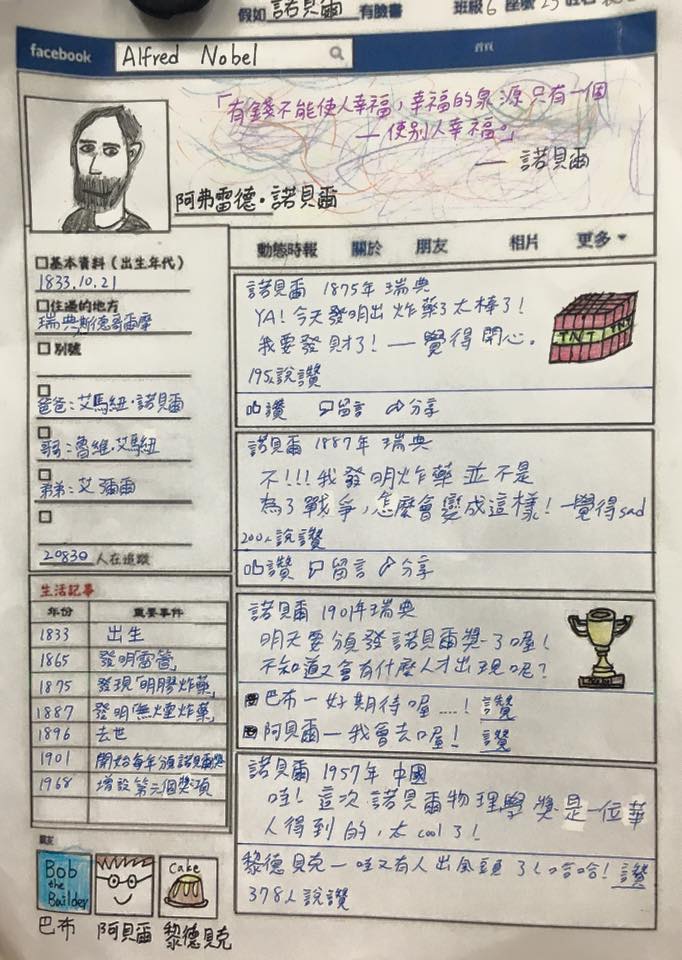 假如 諾貝爾 有臉書
班級6 座號25
facebook Alfred Nobel
首頁
「有錢不能使人幸福，幸福的泉源只有一個
—使別人幸福。」
— 諾貝爾
阿弗雷德·諾貝爾
動態時報 關於 朋友 相片 更多
基本資料（出生年代）
1833.10.21
住過的地方
瑞典斯德哥爾摩
別號
爸爸：艾馬紐·諾貝爾
哥哥：魯維·艾馬紐
弟弟：艾彌爾
20830 人在追蹤
生活記事
年份 重要事件
1833 出生
1865 發明雷管
1875 發現「明膠炸藥」
1887 發明「無煙炸藥」
1896 去世
1901 開始每年頒諾貝爾獎
1968 增設第六個獎項
親友
Bob the Builder
Cake
巴布 阿貝爾 黎德貝克
諾貝爾 1875年 瑞典
YA！今天發明出炸藥了太棒了！
我要發財了！— 覺得開心。
TNT TNT
195人說讚
讚 留言 分享
諾貝爾 1887年 瑞典
不！！！我發明炸藥並不是
為了戰爭，怎麼會變成這樣！—覺得sad
200人說讚
讚 留言 分享
諾貝爾 1901年瑞典
明天要頒發諾貝爾獎了喔！
不知道又會有什麼人才出現呢？
巴布—好期待喔....！讚
阿貝爾—我會去喔！ 讚
諾貝爾 1957年 中國
哇！這次諾貝爾物理學獎是一位華
人得到的，太cool了！
黎德貝克—哇又有人出風頭了！哈哈！讚
378人說讚